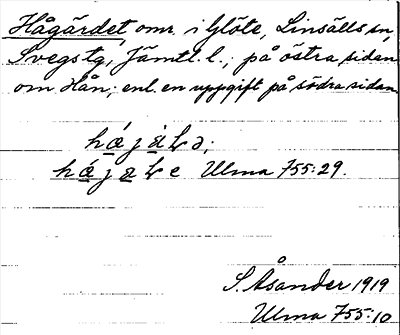 Hågärdet, omr. i Glöte, Linsälls sn,
Svegs tg, Jämtl. l.; på östra sidan
om Hån; enl. en uppgift på södra sidan
Ulma 755:29.
S. Åsander 1919
Ulma 755:10